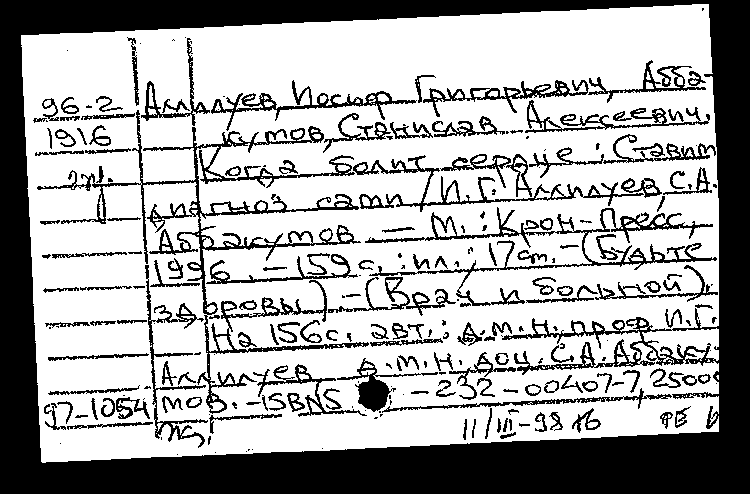 96-2 Аллилуев, Иосиф Григорьевич, Абба-
1916 кумов, Станислав Алексеевич.
Когда болит сердце : Ставим
диагноз сами / И.Г. Аллилуев, С.А.
Аббакумов. — М. : Крон-Пресс,
1996. — 159 с. : ил. ; 17 см. — (Будьте
здоровы) — (Врач и больной).
На 156 с. авт.: д.м.н., проф И.Г.
Аллилуев, д.м.н, доц. С.А. Аббаку-
97-1054 мов. — ISBN5 -232-00407-7, 2500
11/III-98